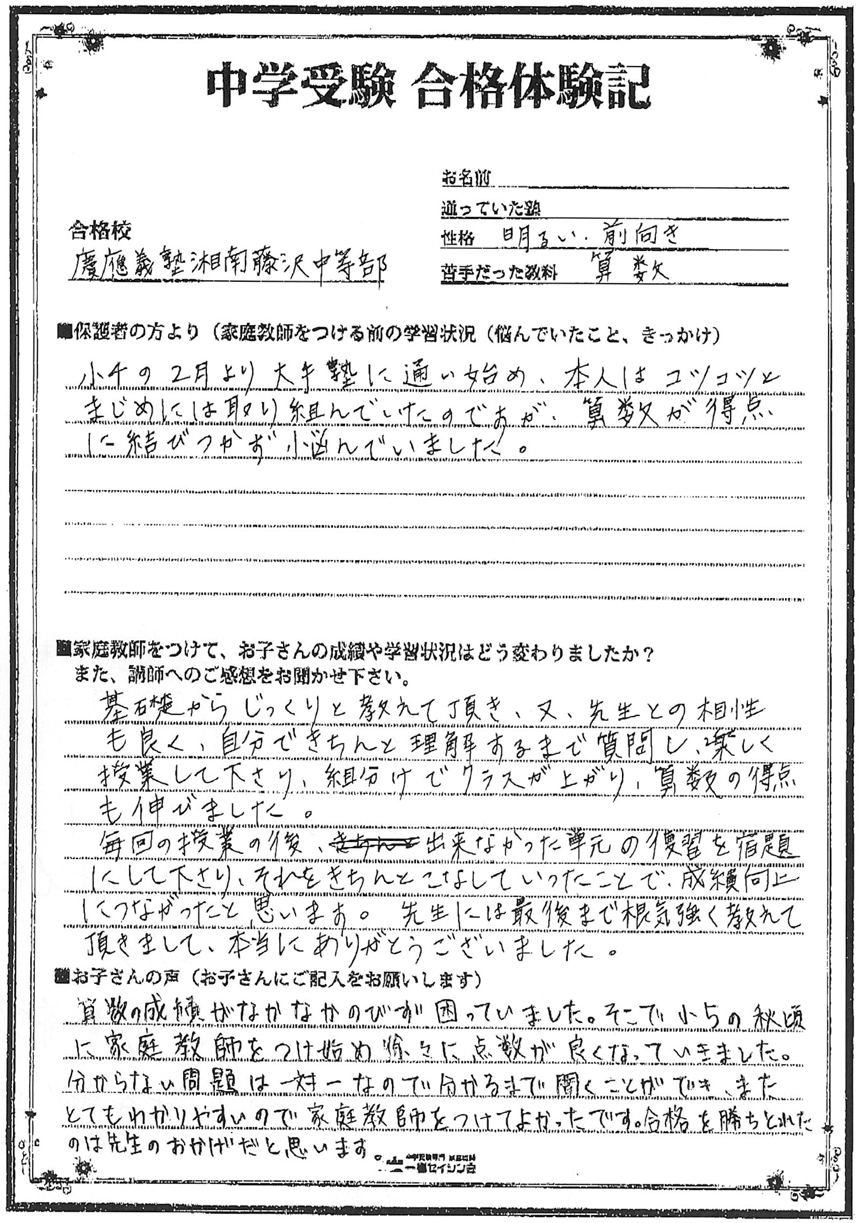 中学受験 合格体験記
お名前
通っていた塾
合格校
性格 明るい・前向き
慶應義塾湘南藤沢中等部
苦手だった教科 算数
■保護者の方より（家庭教師をつける前の学習状況（悩んでいたこと、きっかけ）
小4の2月より大手塾に通い始め、本人はコツコツと
まじめには取り組んでいたのですが、算数が得点
に結びつかず悩んでいました。
■家庭教師をつけて、お子さんの成績や学習状況はどう変わりましたか？
また、講師へのご感想をお聞かせ下さい。
基礎からじっくりと教えて頂き、又、先生との相性
も良く、自分できちんと理解するまで質問し、楽しく
授業して下さり、組分けでクラスが上がり、算数の得点
も伸びました。
毎回の授業の後、出来なかった単元の復習を宿題
にして下さり、それをきちんとこなしていったことで、成績向上
につながったと思います。先生には最後まで根気強く教えて
頂きまして、本当にありがとうございました。
■お子さんの声（お子さんにご記入をお願いします）
算数の成績がなかなかのびず困っていました。そこで小5の秋頃
に家庭教師をつけ始め徐々に点数が良くなっていきました。
分からない問題は一対一なので分かるまで聞くことができ、また
とてもわかりやすいので家庭教師をつけてよかったです。合格を勝ちとれた
のは先生のおかげだと思います。
一橋セイシン会